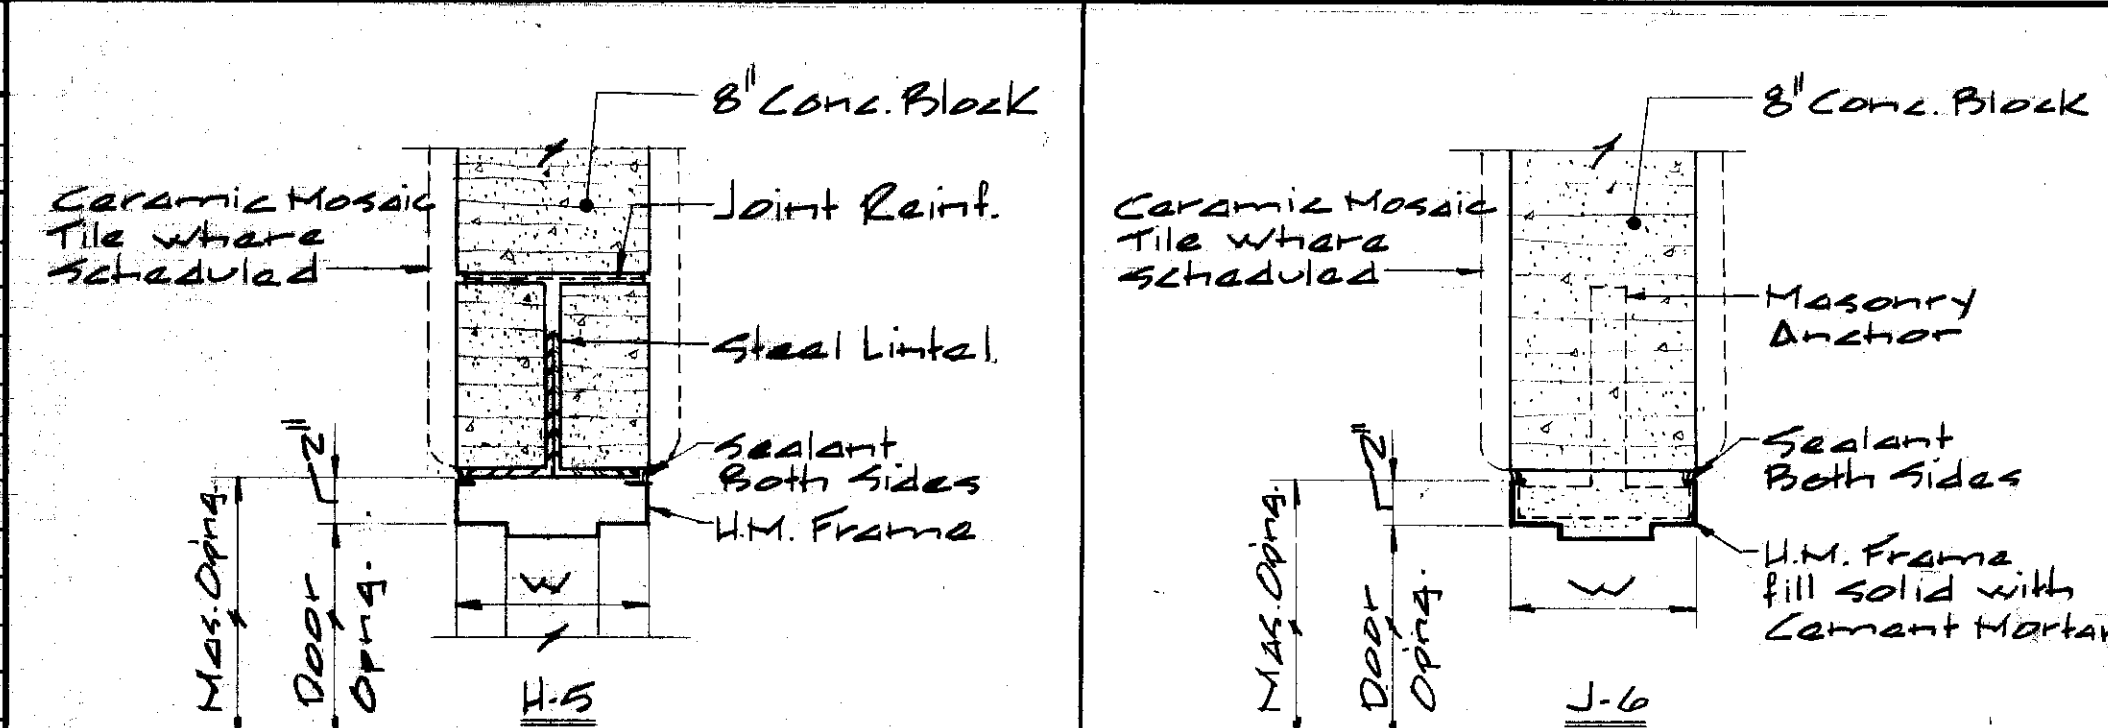 8" Conc. Block
Ceramic Mosaic
Tile where
scheduled
Joint Reinf.
Steel Lintel
2"
Sealant
Both Sides
H.M. Frame
Mas. Opng.
Door
Opng.
W
H-5
8" Conc. Block
Ceramic Mosaic
Tile where
scheduled
Masonry
Anchor
2"
Sealant
Both Sides
H.M. Frame
fill solid with
Cement Mortar
Mas. Opng.
Door
Opng.
W
J-6